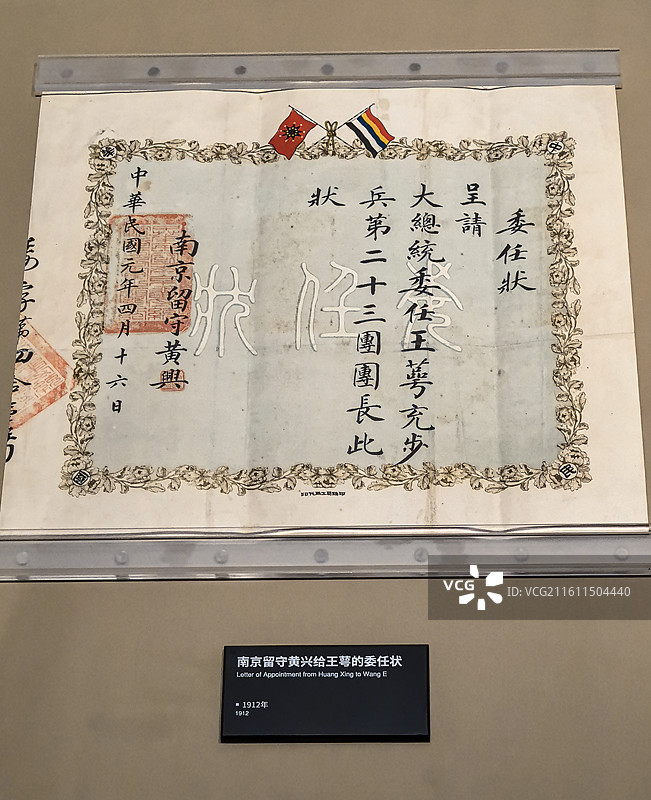 委任狀
呈請
大總統委任王萼充步
兵第二十三團團長此
狀
南京留守黃興
中華民國元年四月十六日
委任狀
中
華
民
國
南京留守黄兴给王萼的委任状
Letter of Appointment from Huang Xing to Wang E
1912年
1912
VCG
ID: VCG211611504440